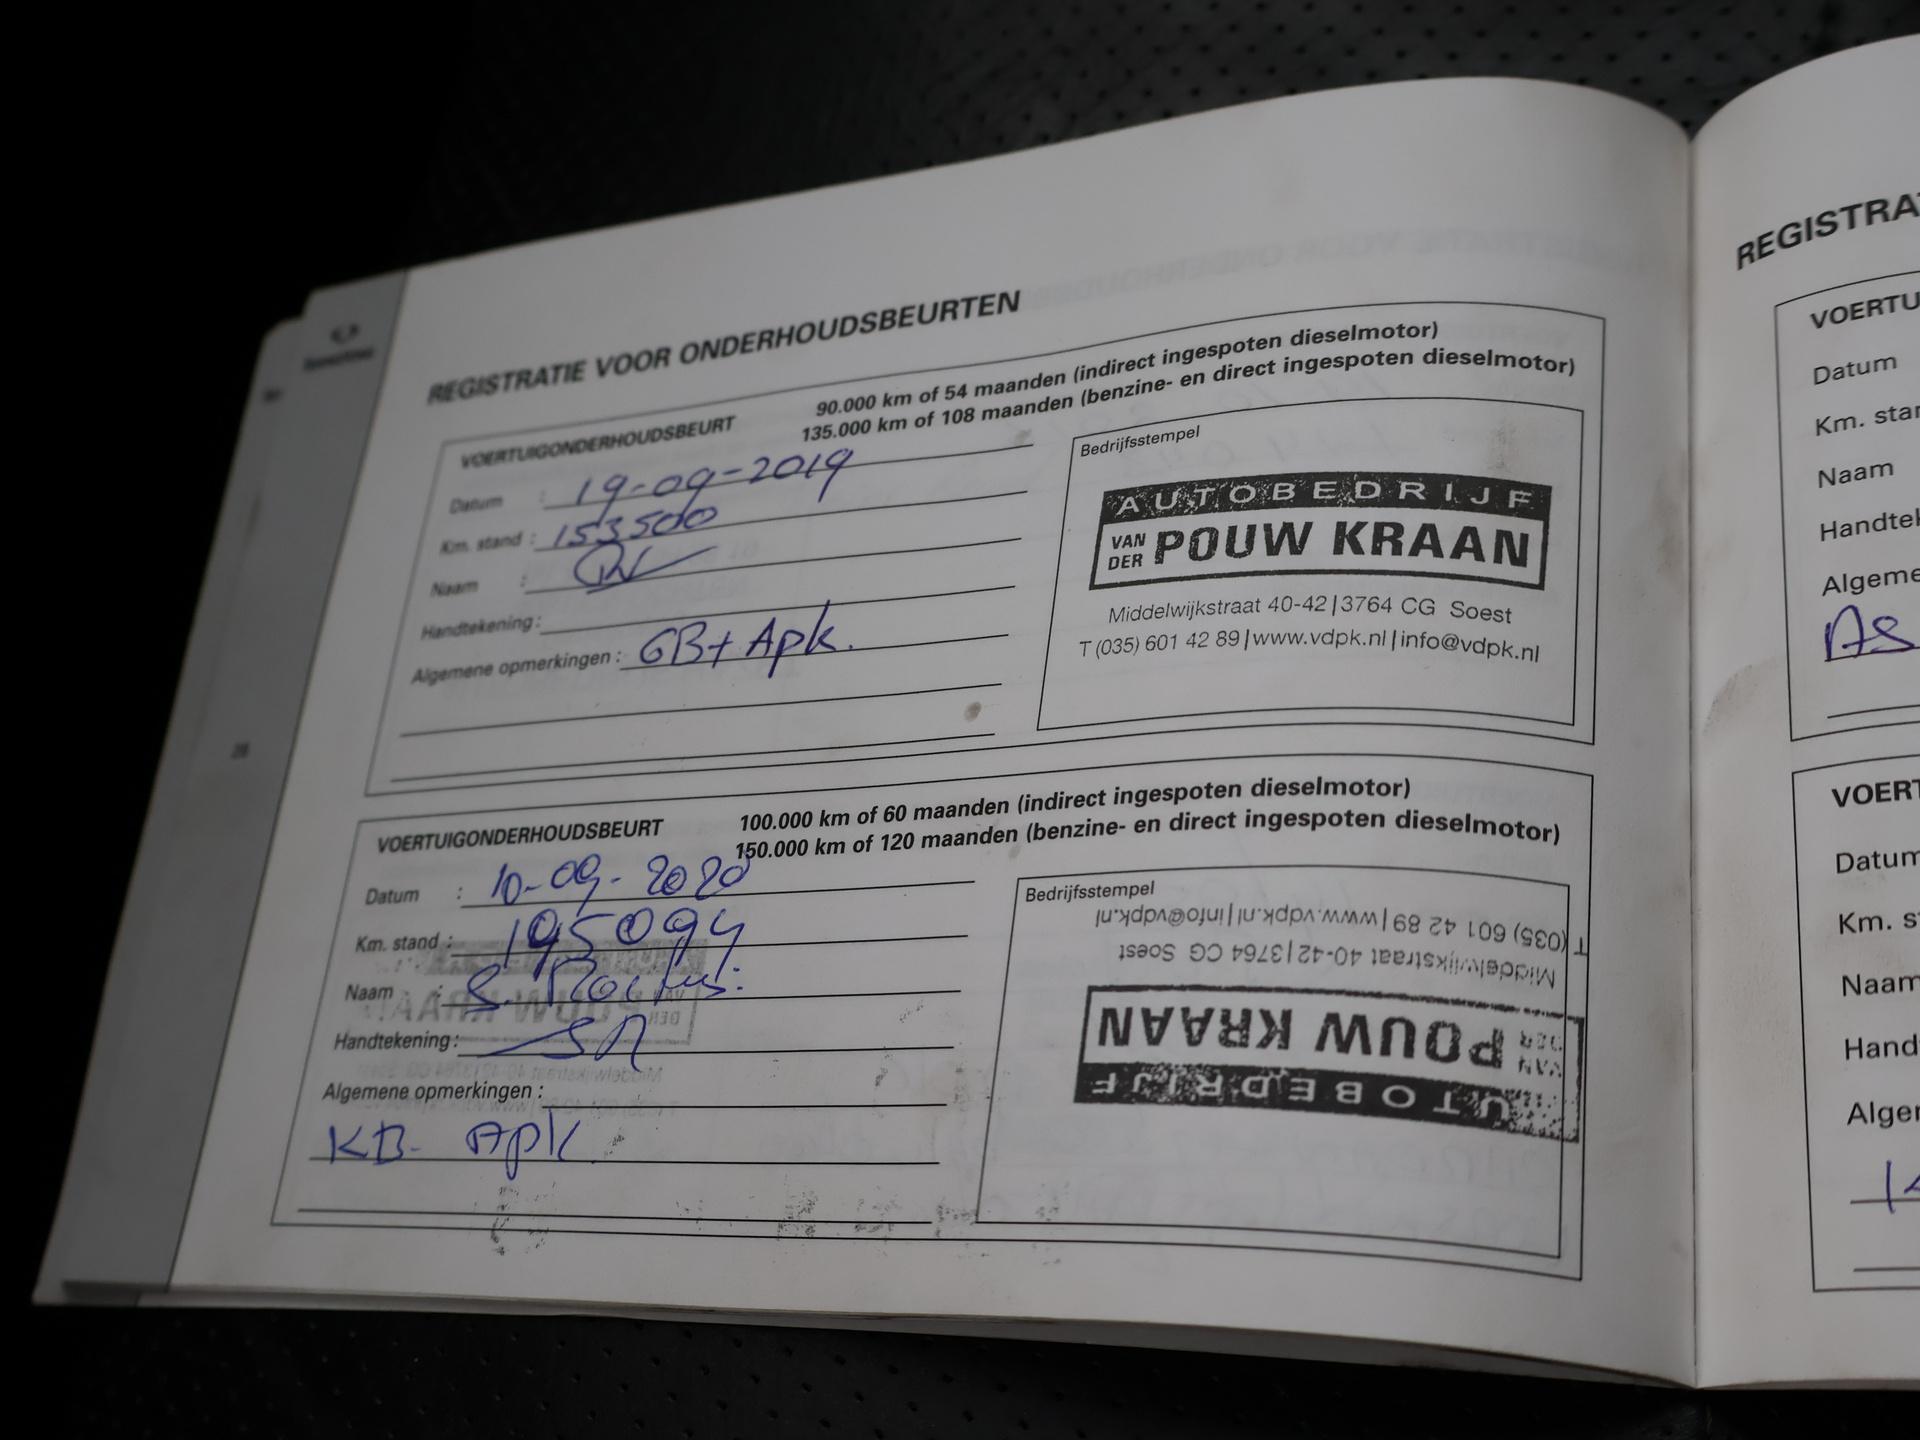 REGISTRATIE VOOR ONDERHOUDSBEURTEN
VOERTUIGONDERHOUDSBEURT
90.000 km of 54 maanden (indirect ingespoten dieselmotor)
135.000 km of 108 maanden (benzine- en direct ingespoten dieselmotor)
Datum : 19-09-2019
Km. stand : 153500
Naam :
Handtekening :
Algemene opmerkingen : GB+ Apk.
Bedrijfsstempel
AUTOBEDRIJF
VAN DER POUW KRAAN
Middelwijkstraat 40-42|3764 CG Soest
T (035) 601 42 89|www.vdpk.nl|info@vdpk.nl
VOERTUIGONDERHOUDSBEURT
100.000 km of 60 maanden (indirect ingespoten dieselmotor)
150.000 km of 120 maanden (benzine- en direct ingespoten dieselmotor)
Datum : 10-09-2020
Km. stand : 195094
Naam : S.
Handtekening :
Algemene opmerkingen :
KB- APK
Bedrijfsstempel
T (035) 601 42 89|www.vdpk.nl|info@vdpk.nl
Middelwijkstraat 40-42|3764 CG Soest
VAN DER POUW KRAAN
AUTOBEDRIJF
REGISTRA
VOERTU
Datum
Km. star
Naam
Handtek
Algeme
AS
VOERT
Datum
Km. s
Naam
Hand
Alger